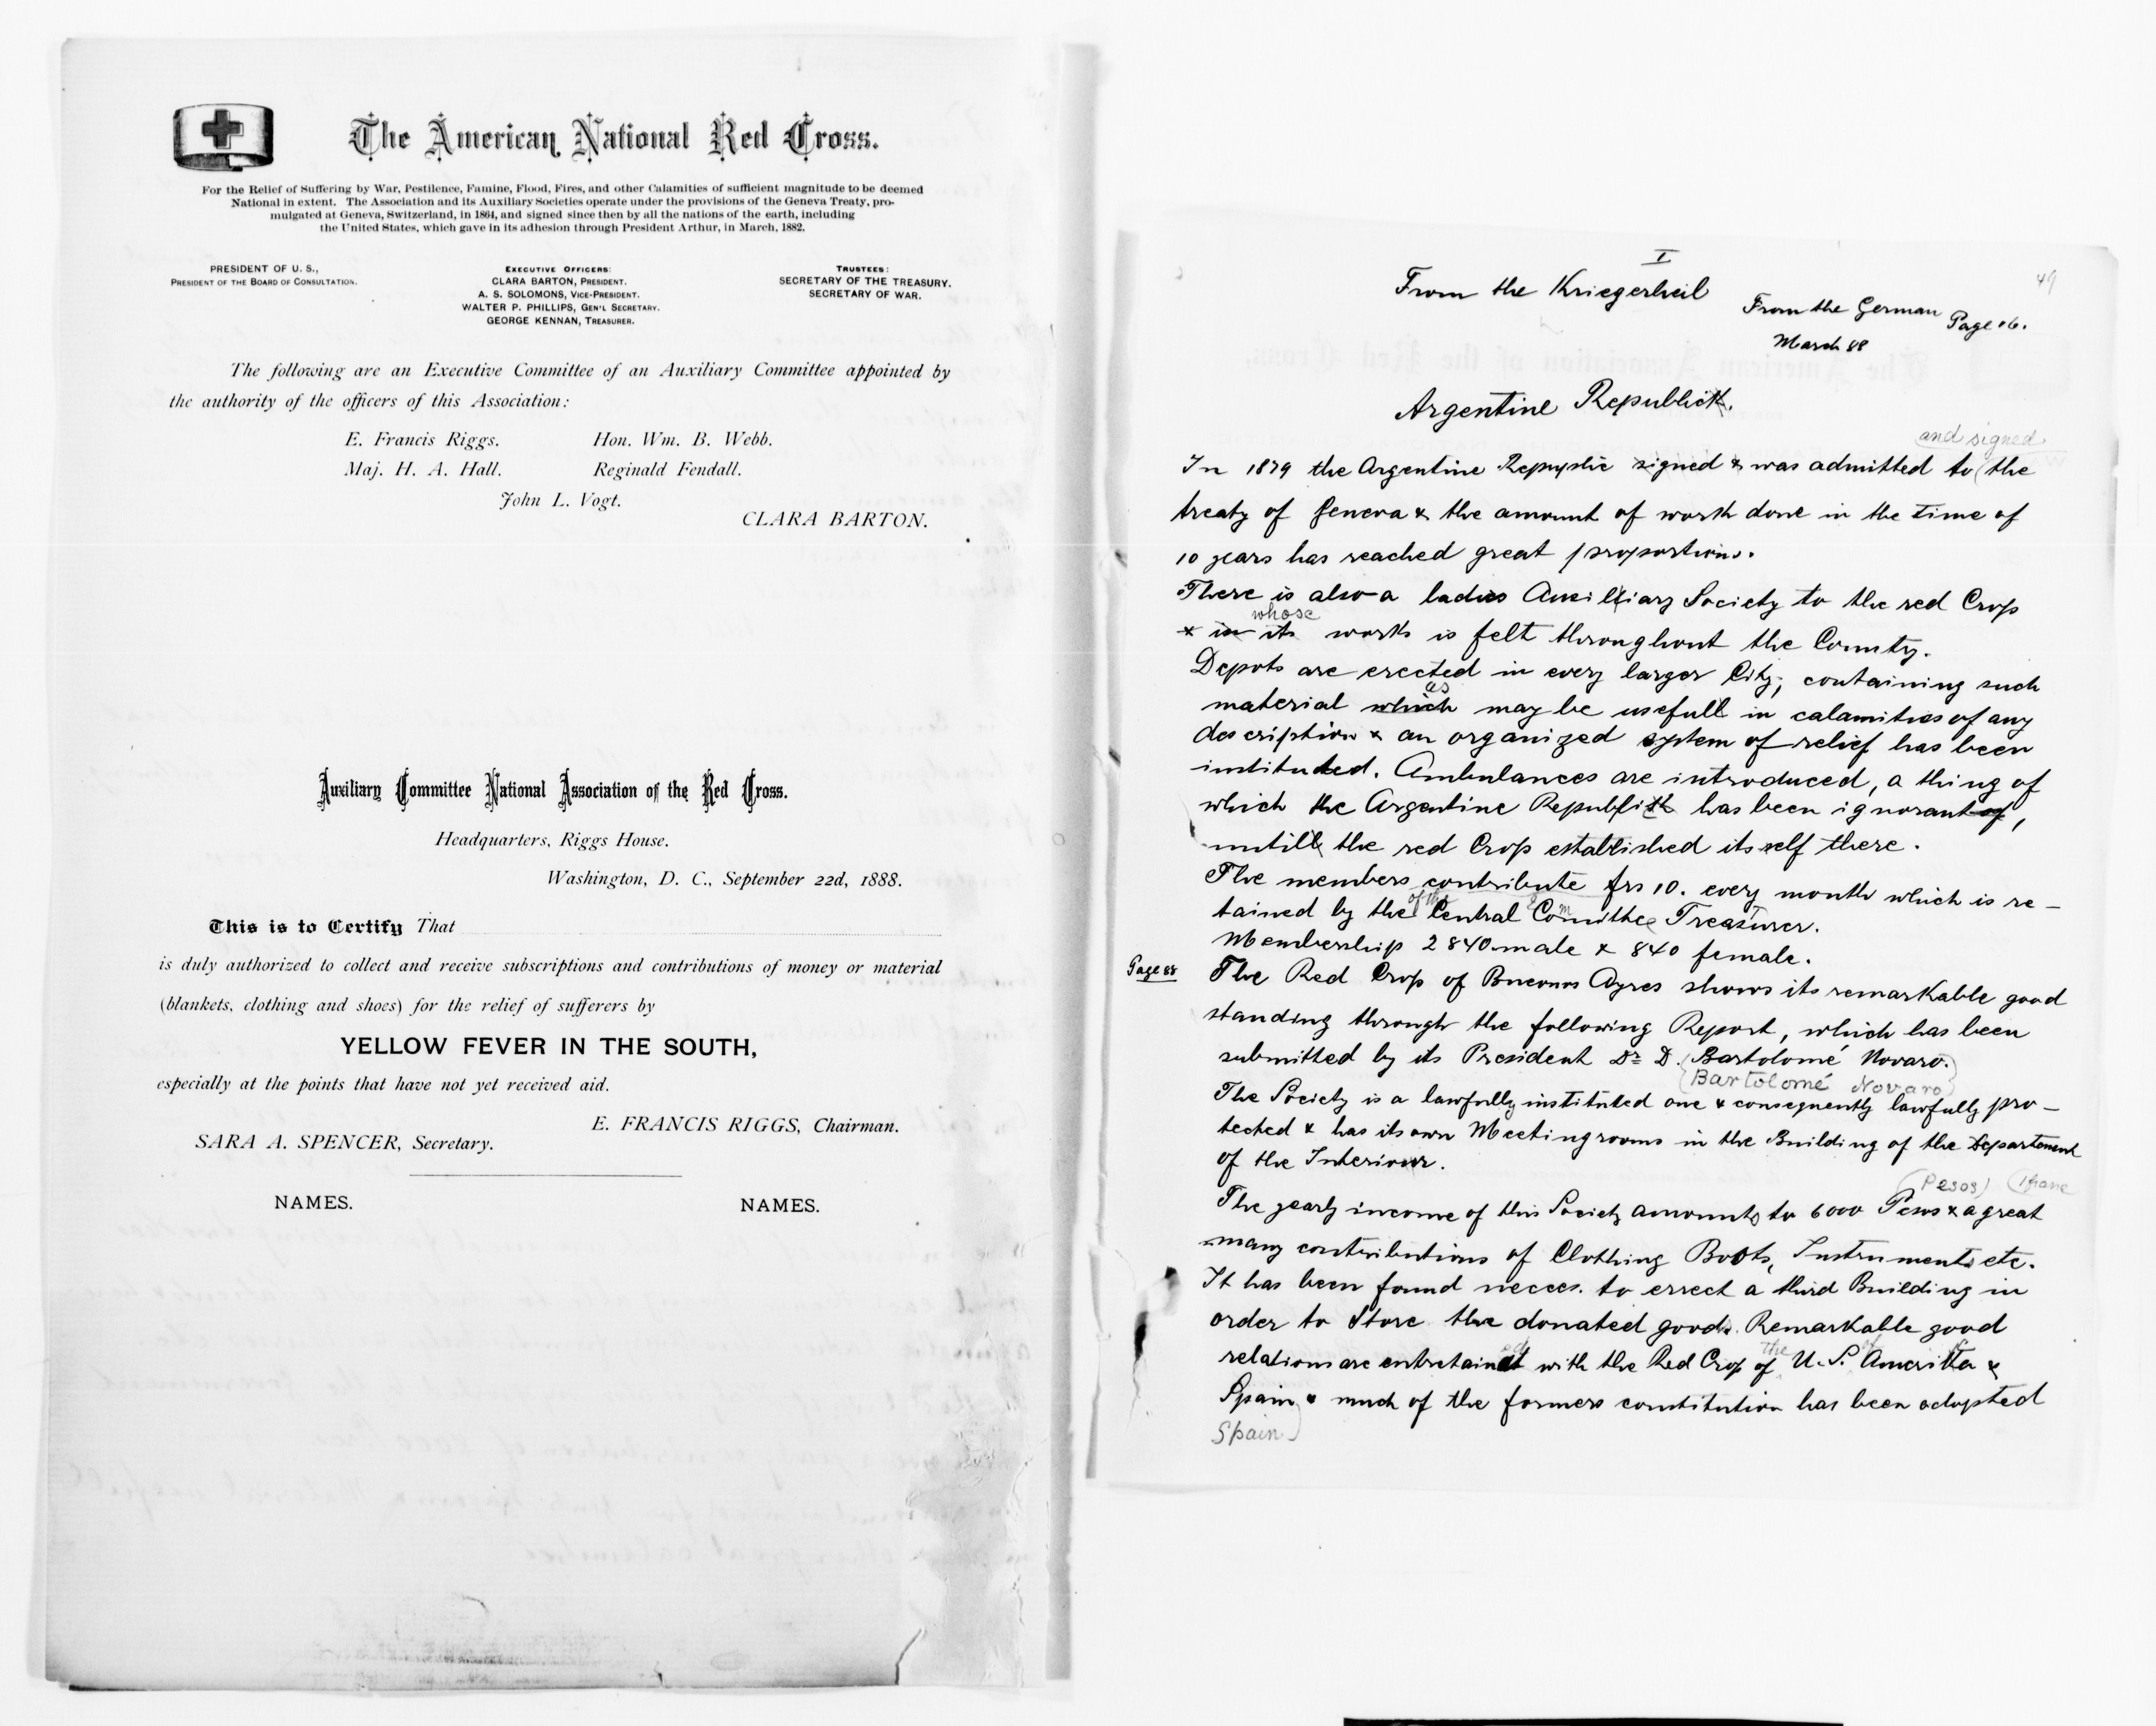 The American National Red Cross.
For the Relief of Suffering by War, Pestilence, Famine, Flood, Fires, and other Calamities of sufficient magnitude to be deemed
National in extent. The Association and its Auxiliary Societies operate under the provisions of the Geneva Treaty, pro-
mulgated at Geneva, Switzerland, in 1864, and signed since then by all the nations of the earth, including
the United States, which gave in its adhesion through President Arthur, in March, 1882.
PRESIDENT OF U. S.,
PRESIDENT OF THE BOARD OF CONSULTATION.
EXECUTIVE OFFICERS:
CLARA BARTON, PRESIDENT.
A. S. SOLOMONS, VICE-PRESIDENT.
WALTER P. PHILLIPS, GEN'L SECRETARY.
GEORGE KENNAN, TREASURER.
TRUSTEES:
SECRETARY OF THE TREASURY.
SECRETARY OF WAR.
The following are an Executive Committee of an Auxiliary Committee appointed by
the authority of the officers of this Association:
E. Francis Riggs. Hon. Wm. B. Webb.
Maj. H. A. Hall. Reginald Fendall.
John L. Vogt.
CLARA BARTON.
Auxiliary Committee National Association of the Red Cross.
Headquarters, Riggs House.
Washington, D. C., September 22d, 1888.
This is to Certify That
is duly authorized to collect and receive subscriptions and contributions of money or material
(blankets, clothing and shoes) for the relief of sufferers by
YELLOW FEVER IN THE SOUTH,
especially at the points that have not yet received aid.
E. FRANCIS RIGGS, Chairman.
SARA A. SPENCER, Secretary.
NAMES. NAMES.
I
49
From the Kriegerheil
From the German Page 16.
March 88
Argentine Republick.
and signed
In 1879 the Argentine Repuplic signed & was admitted to (the
treaty of Geneva & the amount of work done in the time of
10 years has reached great proportions.
There is also a ladies Auxilliary Society to the red Cross
whose
& in its works is felt throughout the County.
Depots are erected in every larger City, containing such
as
material which may be usefull in calamities of any
description & an organized system of relief has been
instituted. Ambulances are introduced, a thing of
which the Argentine Republick has been ignorant of,
untill the red Cross established its self there.
The members contribute frs 10. every month which is re-
of the
tained by the Central Comithee Treasurer.
Membership 2840 male & 840 female.
Page 88
The Red Cross of Buenos Ayres shows its remarkable good
standing through the following Report, which has been
submitted by its President Dr D. (Bartolomé Novaro.)
(Bartolomé Novaro)
The Society is a lawfully instituted one & consequently lawfully pro-
tected & has its own Meetingrooms in the Building of the Departement
of the Interiour.
(Pesos) (1 franc
The yearly income of this Society amounts to 6000 Pesos & a great
many contributions of Clothing Boots, Instruments etc.
It has been found necces. to errect a third Building in
order to store the donated goods. Remarkable good
ed the of
relations are entretainet with the Red Cross of U. S. Amerika &
Spain & much of the formers constitution has been adopted
Spain)